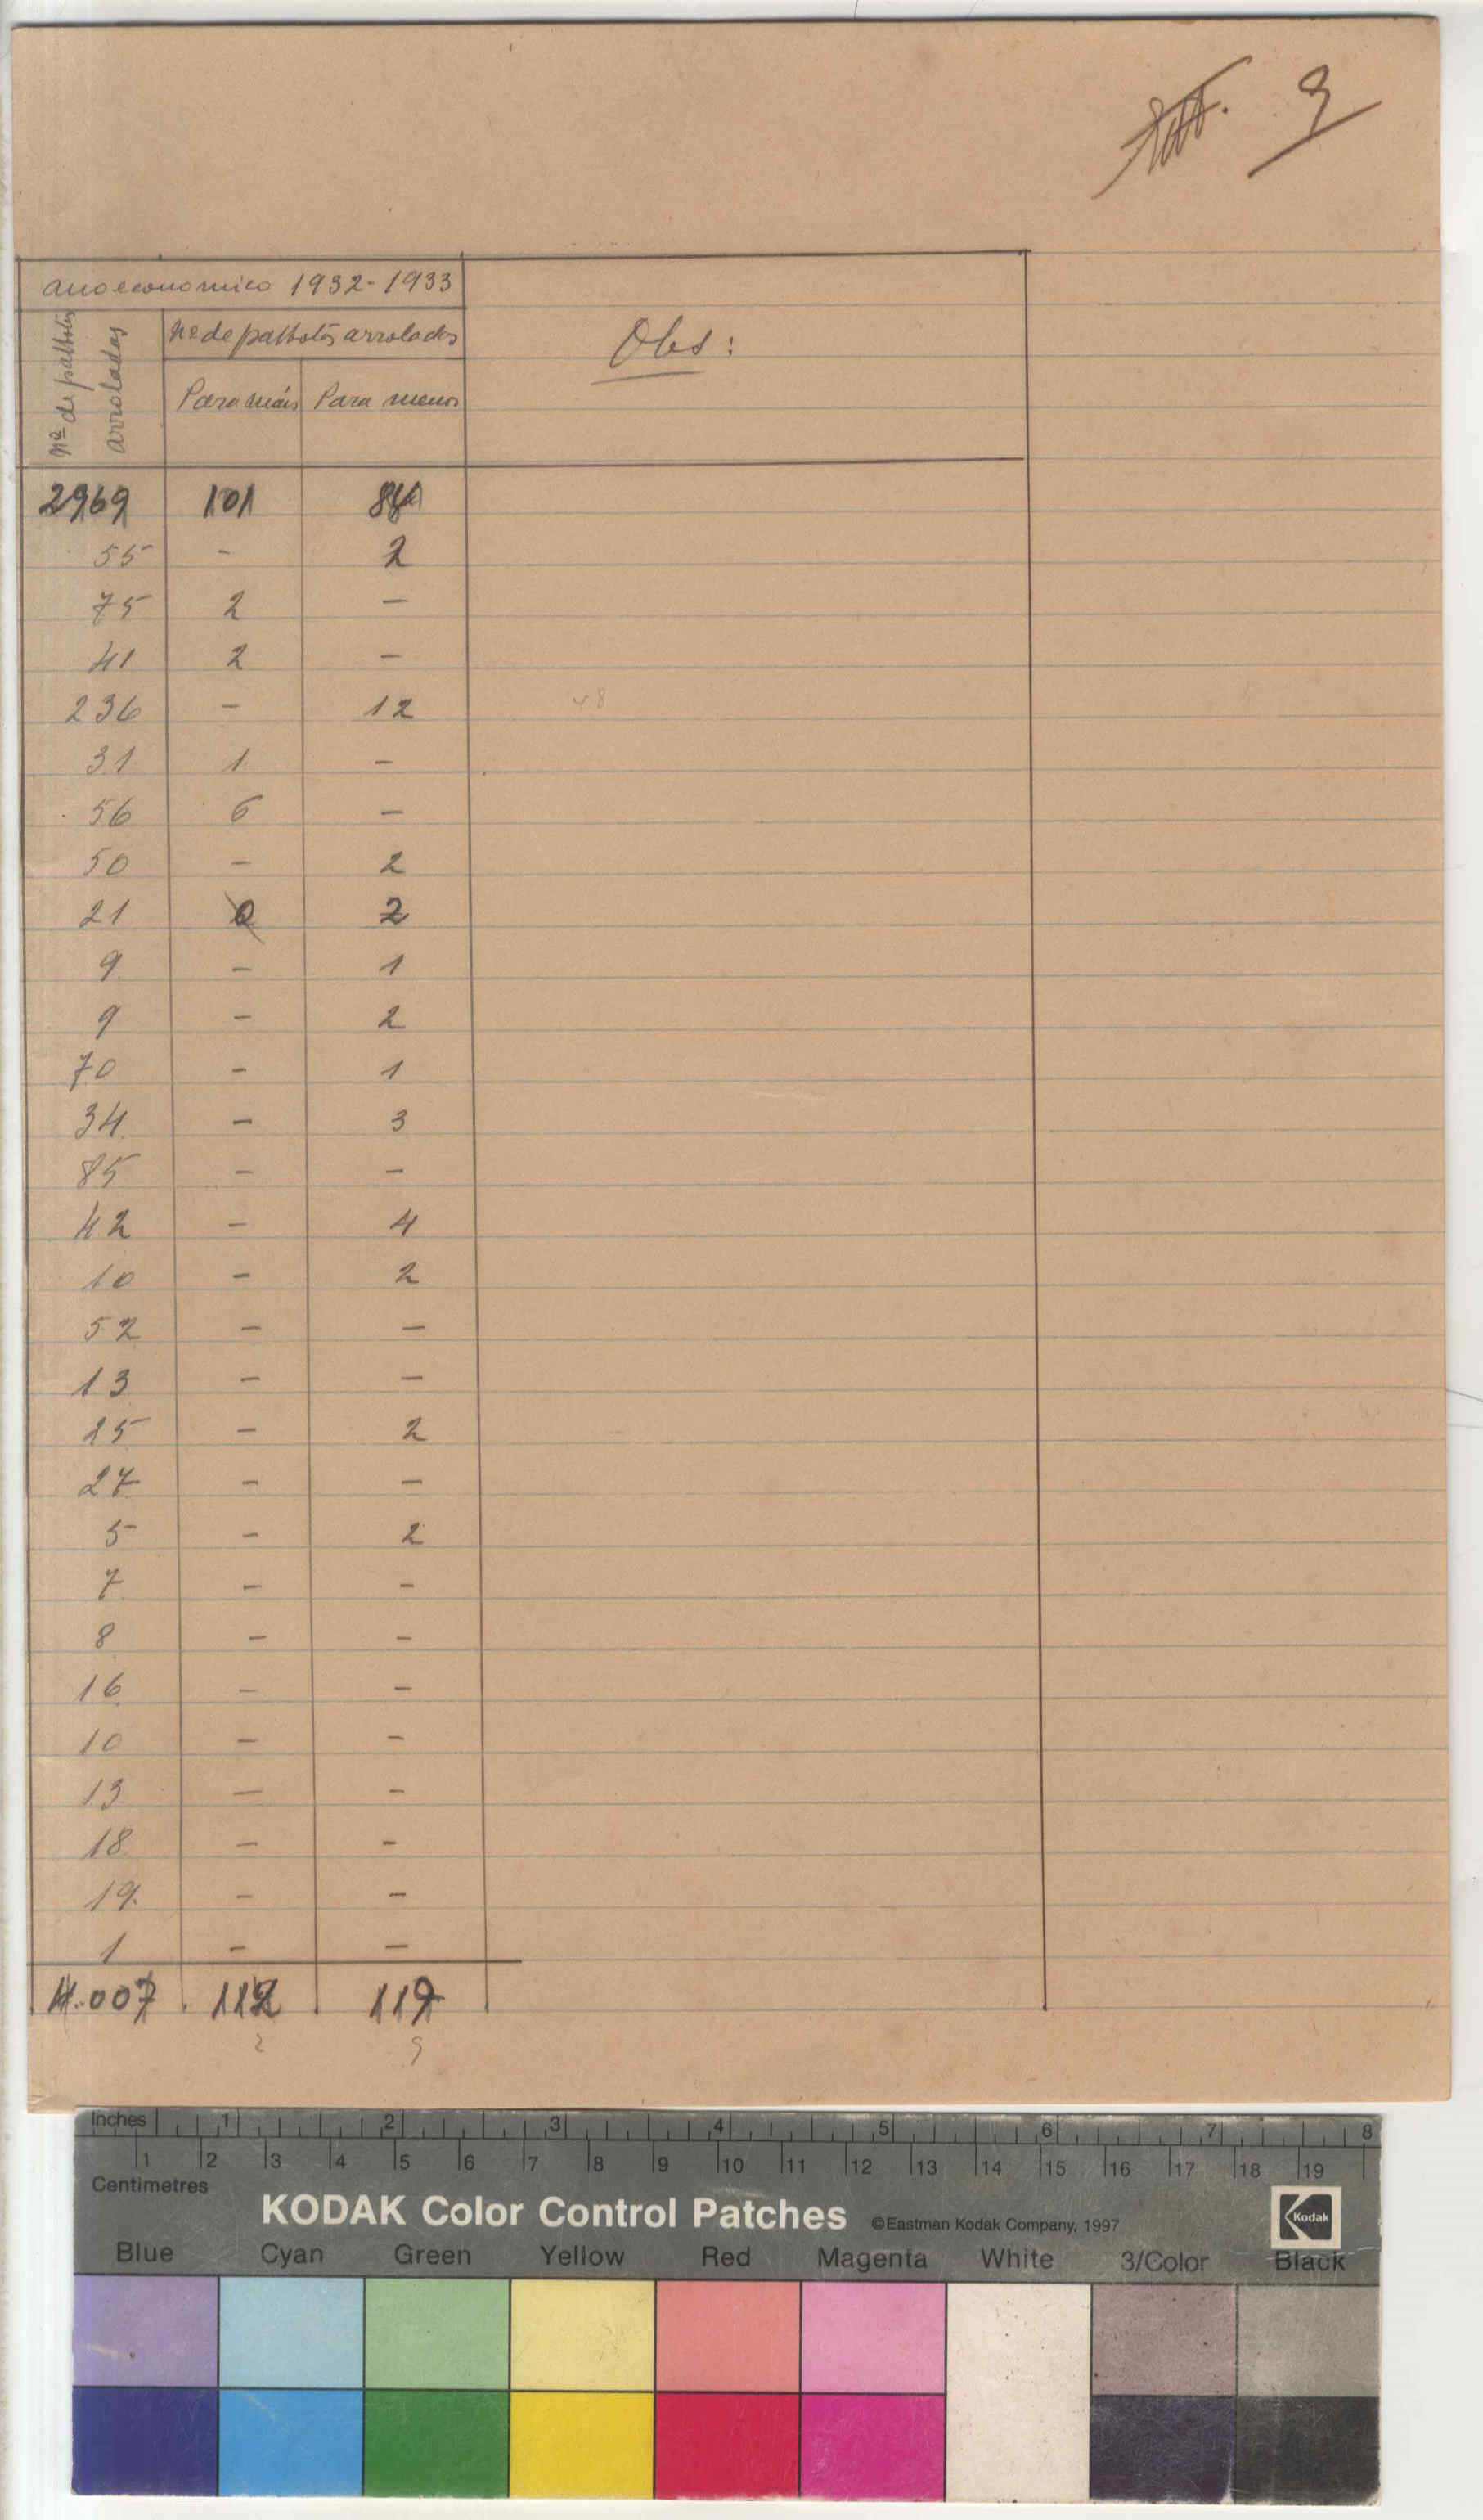 9
ano economico 1932-1933
Nº de palhotas arroladas
Nº de palhotas arroladas
Para mais Para menos
Obs:
2969 101 84
55 - 2
75 2 -
41 2 -
236 - 12
48
31 1 -
56 6 -
50 - 2
21 2
9 - 1
9 - 2
70 - 1
34 - 3
85 - -
42 - 4
10 - 2
52 - -
13 - -
25 - 2
27 - -
5 - 2
7 - -
8 - -
16 - -
10 - -
13 - -
18 - -
19 - -
1 - -
4.007 112 119
2 9
Inches 1 2 3 4 5 6 7 8
1 2 3 4 5 6 7 8 9 10 11 12 13 14 15 16 17 18 19
Centimetres
KODAK Color Control Patches ©Eastman Kodak Company, 1997 Kodak
Blue Cyan Green Yellow Red Magenta White 3/Color Black